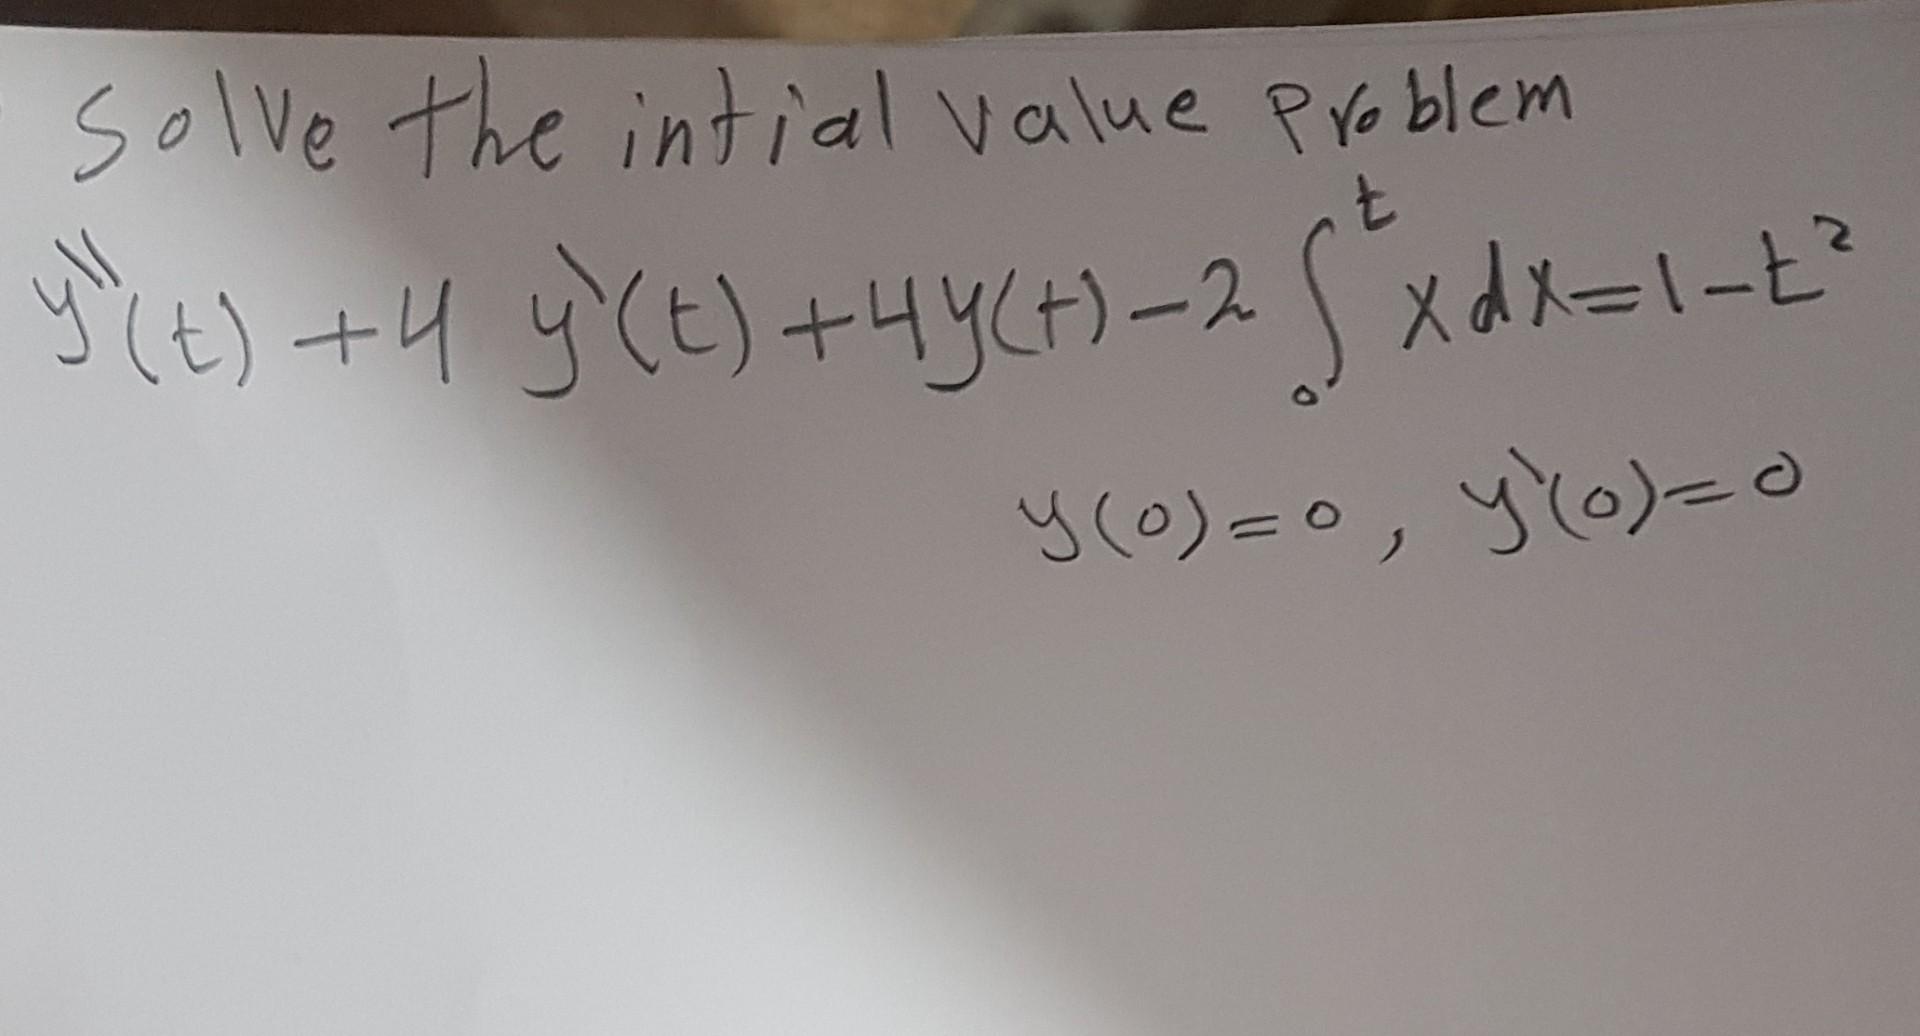 Solve the intial value problem
y''(t) + 4 y'(t) + 4y(t) - 2 ∫₀ᵗ x dx = 1 - t²
y(0) = 0, y'(0) = 0